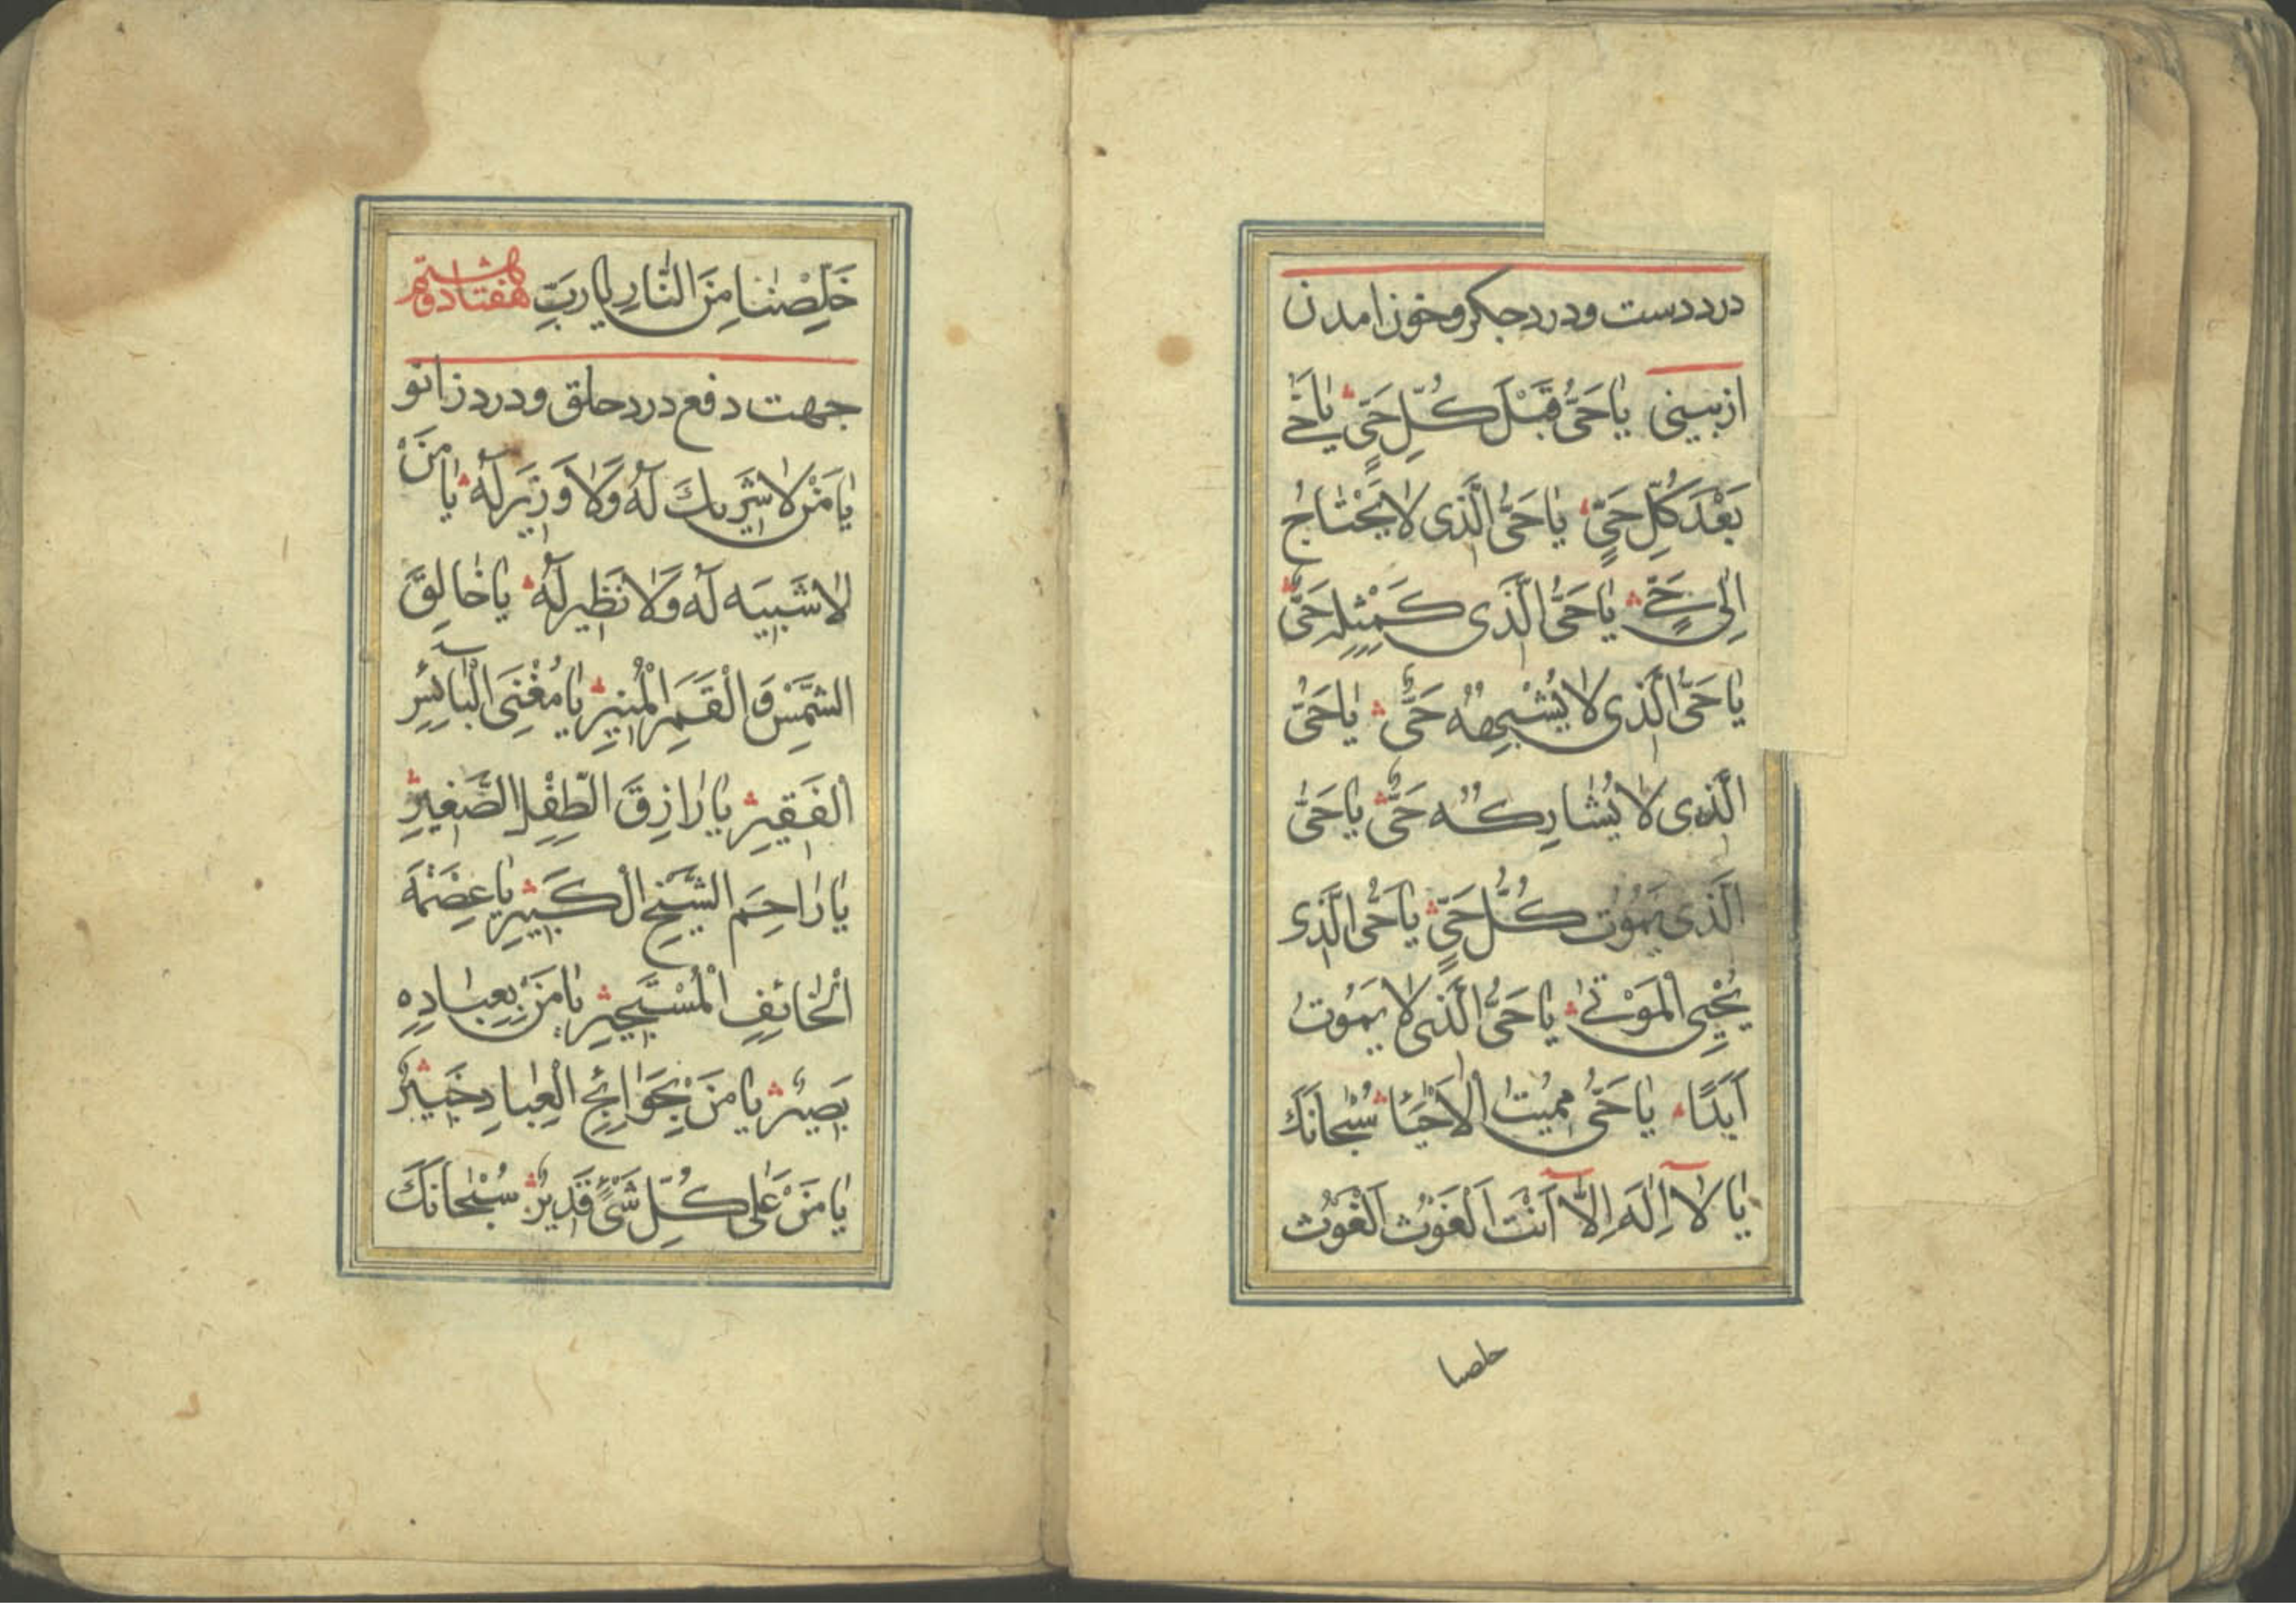 درد دست و درد جکر و خون امدن
از بینی یٰا حَیُّ قَبْلَ كُلِّ حَیٍّ یٰا حَیُّ
بَعْدَ كُلِّ حَیٍّ یٰا حَیُّ الَّذی لٰا یَحْتٰاجُ
اِلیٰ حَیٍّ یٰا حَیُّ الَّذی كَمِثْلِهِ حَیٌّ
یٰا حَیُّ الَّذی لٰا یُشْبِهُهُ حَیٌّ یٰا حَیُّ
الَّذی لٰا یُشٰارِكُهُ حَیٌّ یٰا حَیُّ
الَّذی یَمُوتُ كُلُّ حَیٍّ یٰا حَیُّ الَّذی
یُحْیِی الْمَوْتیٰ یٰا حَیُّ الَّذی لٰا یَمُوتُ
اَبَدًا یٰا حَیُّ مُمیتُ الْاَحْیٰا سُبْحٰانَكَ
یٰا لٰا اِلٰهَ اِلّٰا اَنْتَ اَلْغَوْثَ اَلْغَوْثَ
خلصنا
خَلِّصْنٰا مِنَ النّٰارِ یٰا رَبِّ هفتاد و هشتم
جهت دفع درد حلق و درد زانو
یٰا مَنْ لٰا شَریكَ لَهُ وَلٰا وَزیَر لَهُ یٰا مَنْ
لٰا شَبیَه لَهُ وَلٰا نَظیرَ لَهُ یٰا خٰالِقَ
الشَّمْسِ وَ الْقَمَرِ الْمُنیرِ یٰا مُغْنِیَ الْبٰآئِسِ
الْفَقیرِ یٰا رٰازِقَ الطِّفْلِ الصَّغیرِ
یٰا رٰاحِمَ الشَّیْخِ الْكَبیرِ یٰا عِصْمَةَ
الْخٰائِفِ الْمُسْتَجیرِ یٰا مَنْ بِعِبٰادِهِ
بَصیرٌ یٰا مَنْ بِحَوٰائِجِ الْعِبٰادِ خَبیٌر
یٰا مَنْ عَلیٰ كُلِّ شَیْءٍ قَدیرٌ سُبْحٰانَكَ